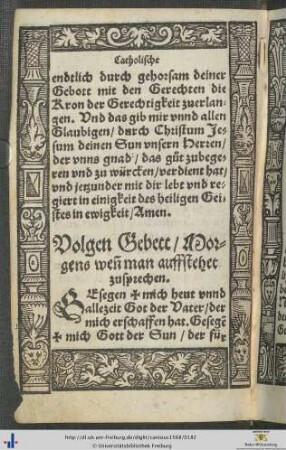 Catholische
endtlich durch gehorsam deiner
Gebott mit den Gerechten die
Kron der Gerechtigkeit zuerlan-
gen. Vnd das gib mir vnnd allen
Glaubigen / durch Christum Je-
sum deinen Sun vnsern Herren /
der vnns gnad / das gůt zubege-
ren vnd zu würcken / verdient hat /
vnd jetzunder mit dir lebt vnd re-
giert in einigkeit des heiligen Gei-
stes in ewigkeit / Amen.
Volgen Gebett / Mor-
gens weñ man auffstehet
zusprechen.
GEsegen ✠ mich heut vnnd
allezeit Got der Vater / der
mich erschaffen hat. Gesegẽ
✠ mich Gott der Sun / der für
http://dl.ub.uni-freiburg.de/diglit/canisius1568/0182
© Universitätsbibliothek Freiburg
Baden-Württemberg